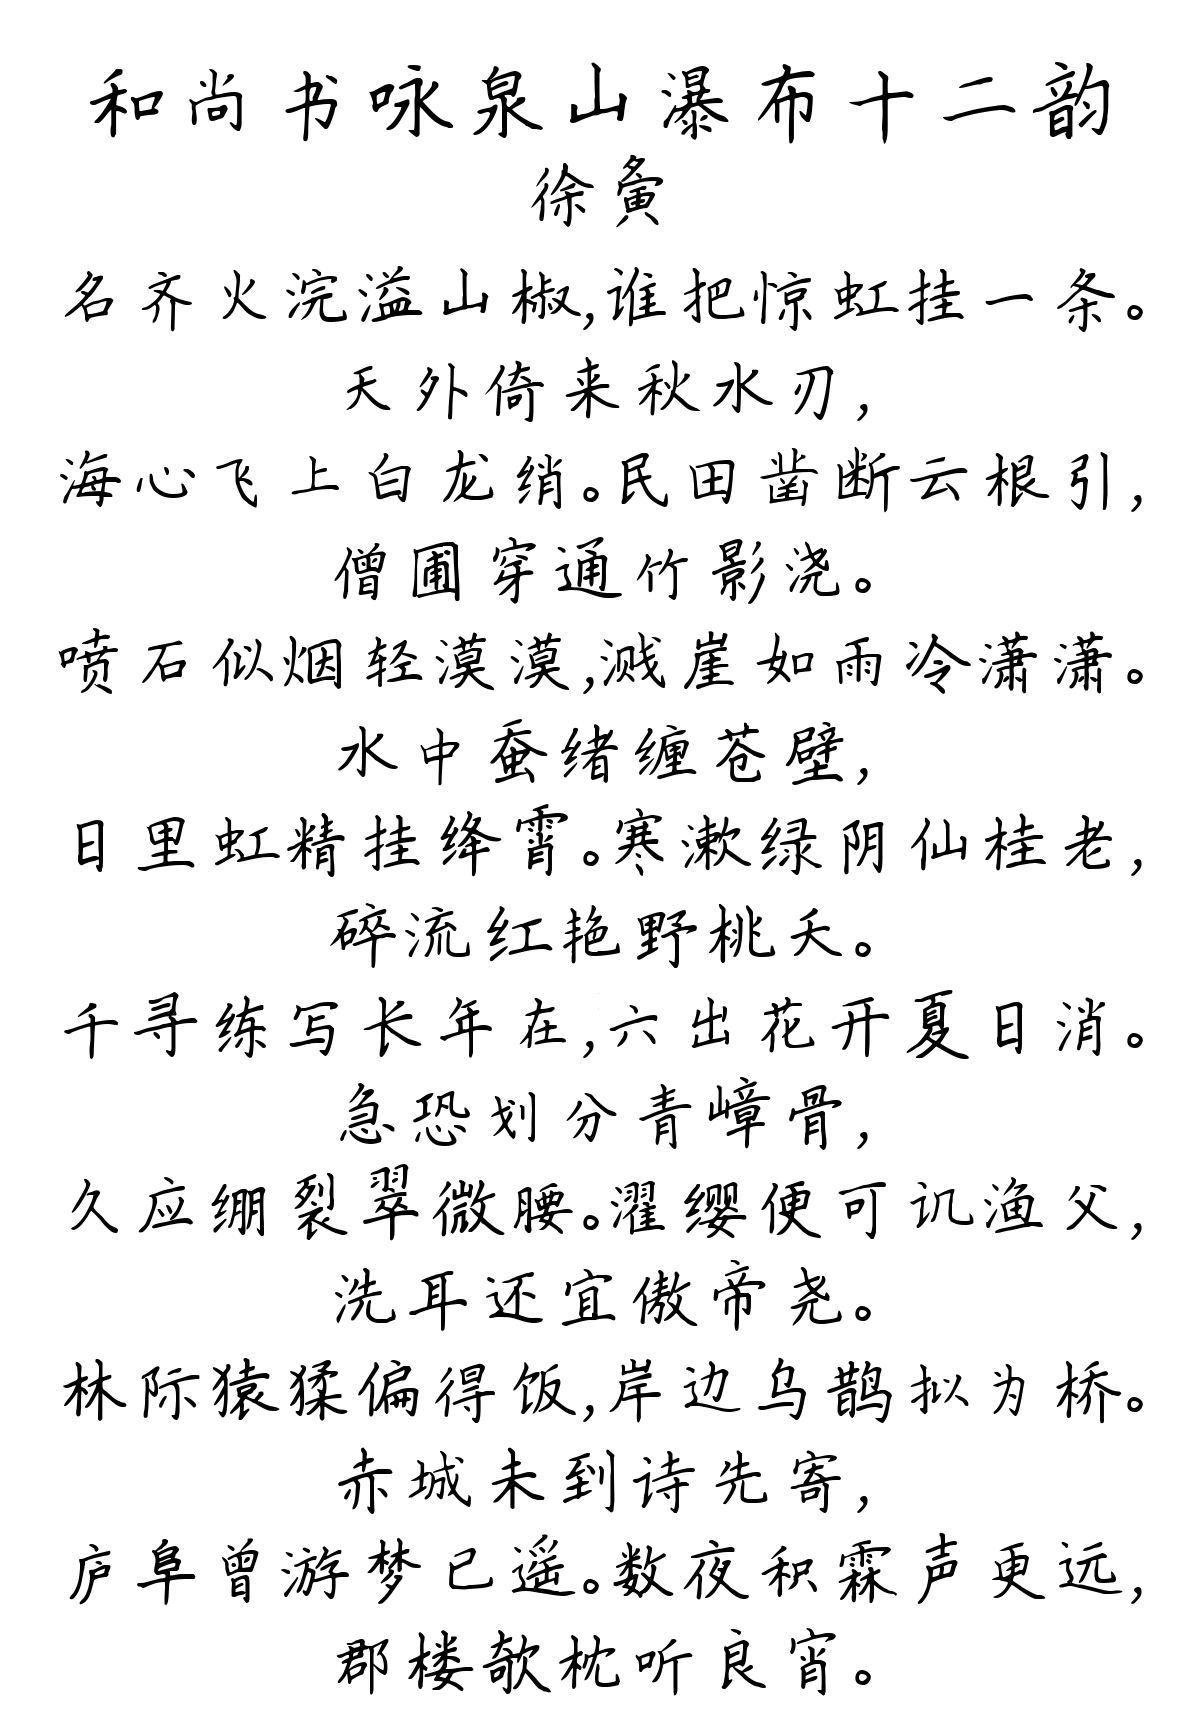 和尚书咏泉山瀑布十二韵
徐夤
名齐火浣溢山椒,谁把惊虹挂一条。
天外倚来秋水刃,
海心飞上白龙绡。民田凿断云根引,
僧圃穿通竹影浇。
喷石似烟轻漠漠,溅崖如雨冷潇潇。
水中蚕绪缠苍壁,
日里虹精挂绛霄。寒漱绿阴仙桂老,
碎流红艳野桃夭。
千寻练写长年在,六出花开夏日消。
急恐划分青嶂骨,
久应绷裂翠微腰。濯缨便可讥渔父,
洗耳还宜傲帝尧。
林际猿猱偏得饭,岸边乌鹊拟为桥。
赤城未到诗先寄,
庐阜曾游梦已遥。数夜积霖声更远,
郡楼欹枕听良宵。